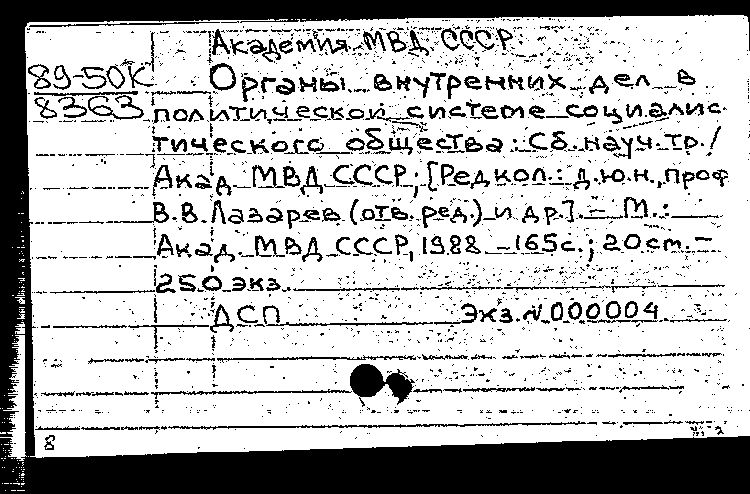 Академия МВД СССР.
89-50К Органы внутренних дел в
8363 политической системе социалис-
тического общества: Сб. науч. тр. /
Акад. МВД СССР; [Редкол.: д.ю.н., проф
В.В. Лазарев (отв. ред.) и др.]. – М.:
Акад. МВД СССР, 1988. – 165 с.; 20 cm. –
250 экз.
ДСП Экз. № 000004
8